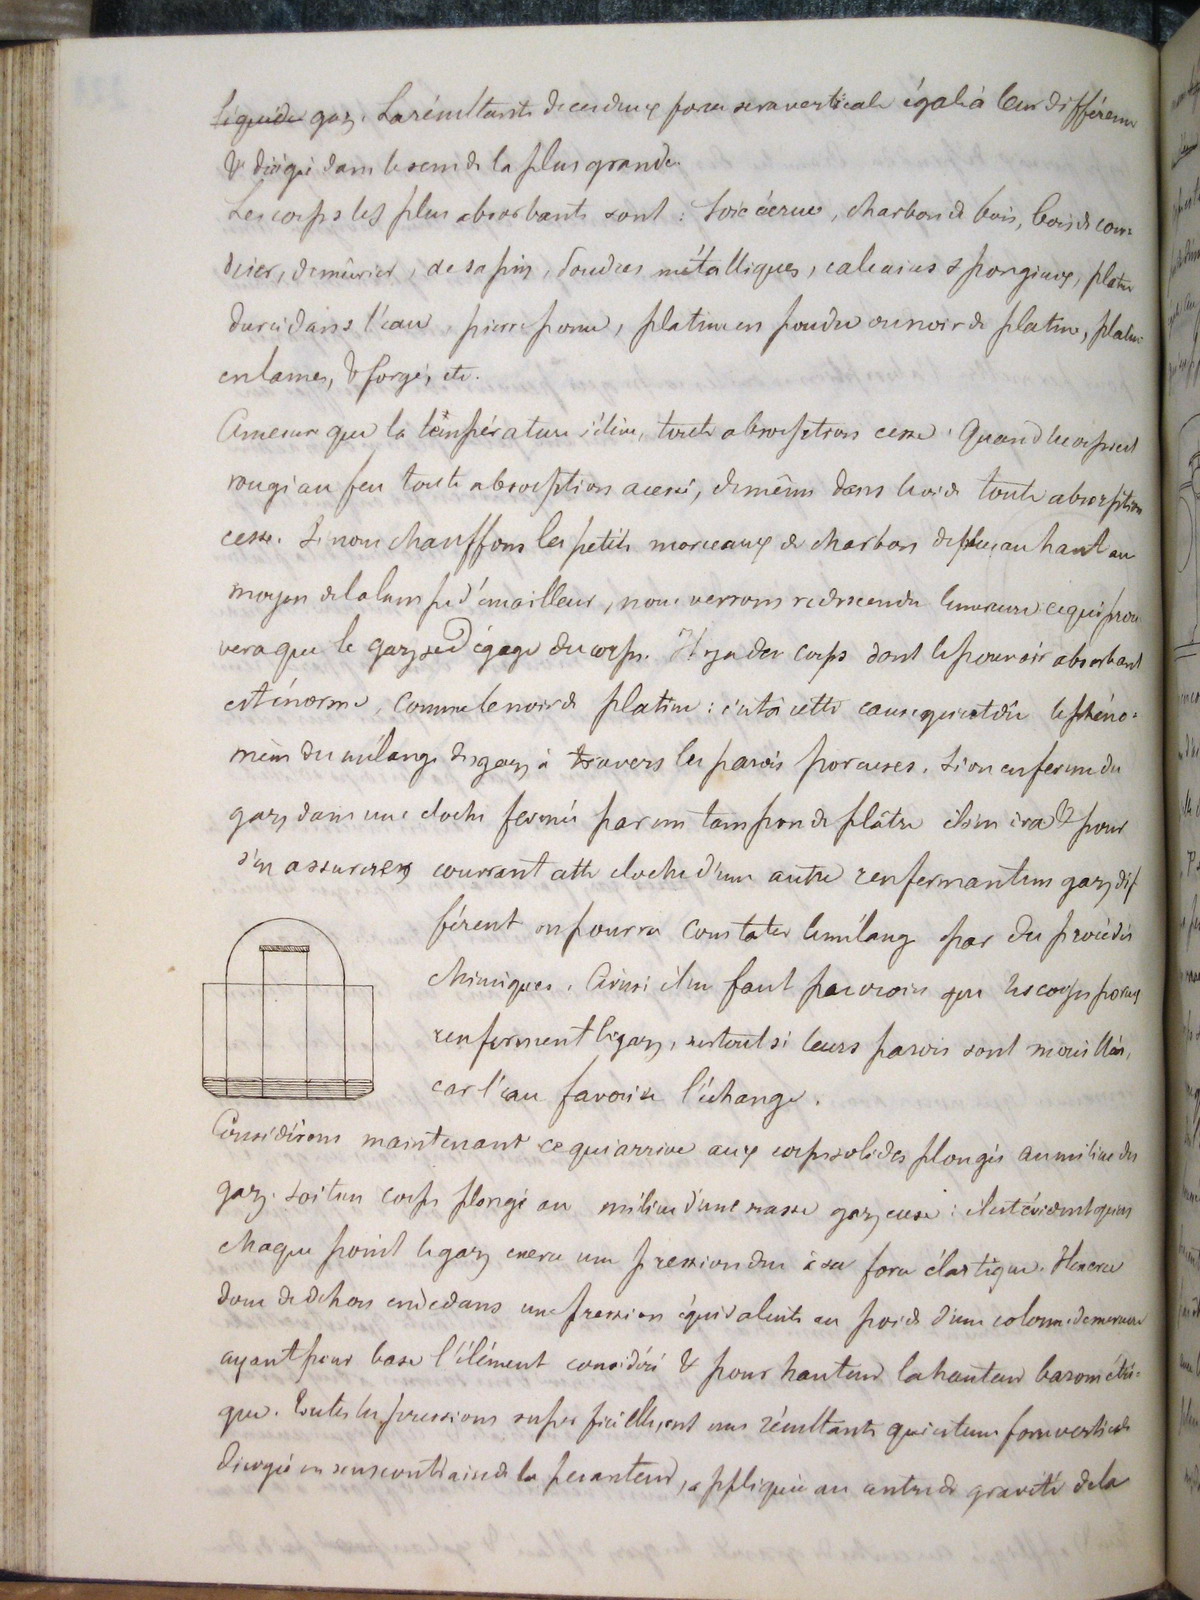 liquide gaz. La résultante de ces deux forces sera verticale égale à leur différence
& dirigée dans le sens de la plus grande.
Les corps les plus absorbants sont : soie écrue, charbon de bois, bois de cou=
drier, de mûrier, de sapin, poudres métalliques, calcaires spongieux, plâtre
durci dans l'eau, pierre ponce, platine en poudre ou noir de platine, platine
en lames, & forgé, etc.
A mesure que la température s'élève, toute absorption cesse. Quand le corps est
rougi au feu toute absorption a cessé, de même dans le vide toute absorption
cesse. Si nous chauffons les petits morceaux de charbon placés au haut au
moyen de la lampe d'émailleur, nous verrons redescendre le mercure ce qui prou
vera que le gaz se dégage du corps. Il y a des corps dont le pouvoir absorbant
est énorme, comme le noir de platine : c'est à cette cause qu'est dû le phéno=
mène du mélange des gaz à travers les parois poreuses. Si on enferme du
gaz dans une cloche fermée par un tampon de plâtre il s'en ira & pour
s'en assurer en couvrant cette cloche d'une autre renfermant un gaz dif
férent on pourra constater le mélange par du procédés
chimiques. Ainsi il ne faut pas croire que les corps poreux
renferment le gaz, surtout si leurs parois sont mouillées,
car l'eau favorise l'échange.
Considérons maintenant ce qui arrive aux corps solides plongés au milieu des
gaz. Soit un corps plongé au milieu d'une masse gazeuse : il est évident qu'en
chaque point le gaz exerce une pression due à sa force élastique. Il exerce
donc de dehors en dedans une pression équivalente au poids d'une colonne de mercure
ayant pour base l'élément considéré & pour hauteur la hauteur barométri=
que. Toutes les pressions superficielles, ont une résultante qui est une force verticale
dirigée en sens contraire de la pesanteur, appliquée au centre de gravité de la